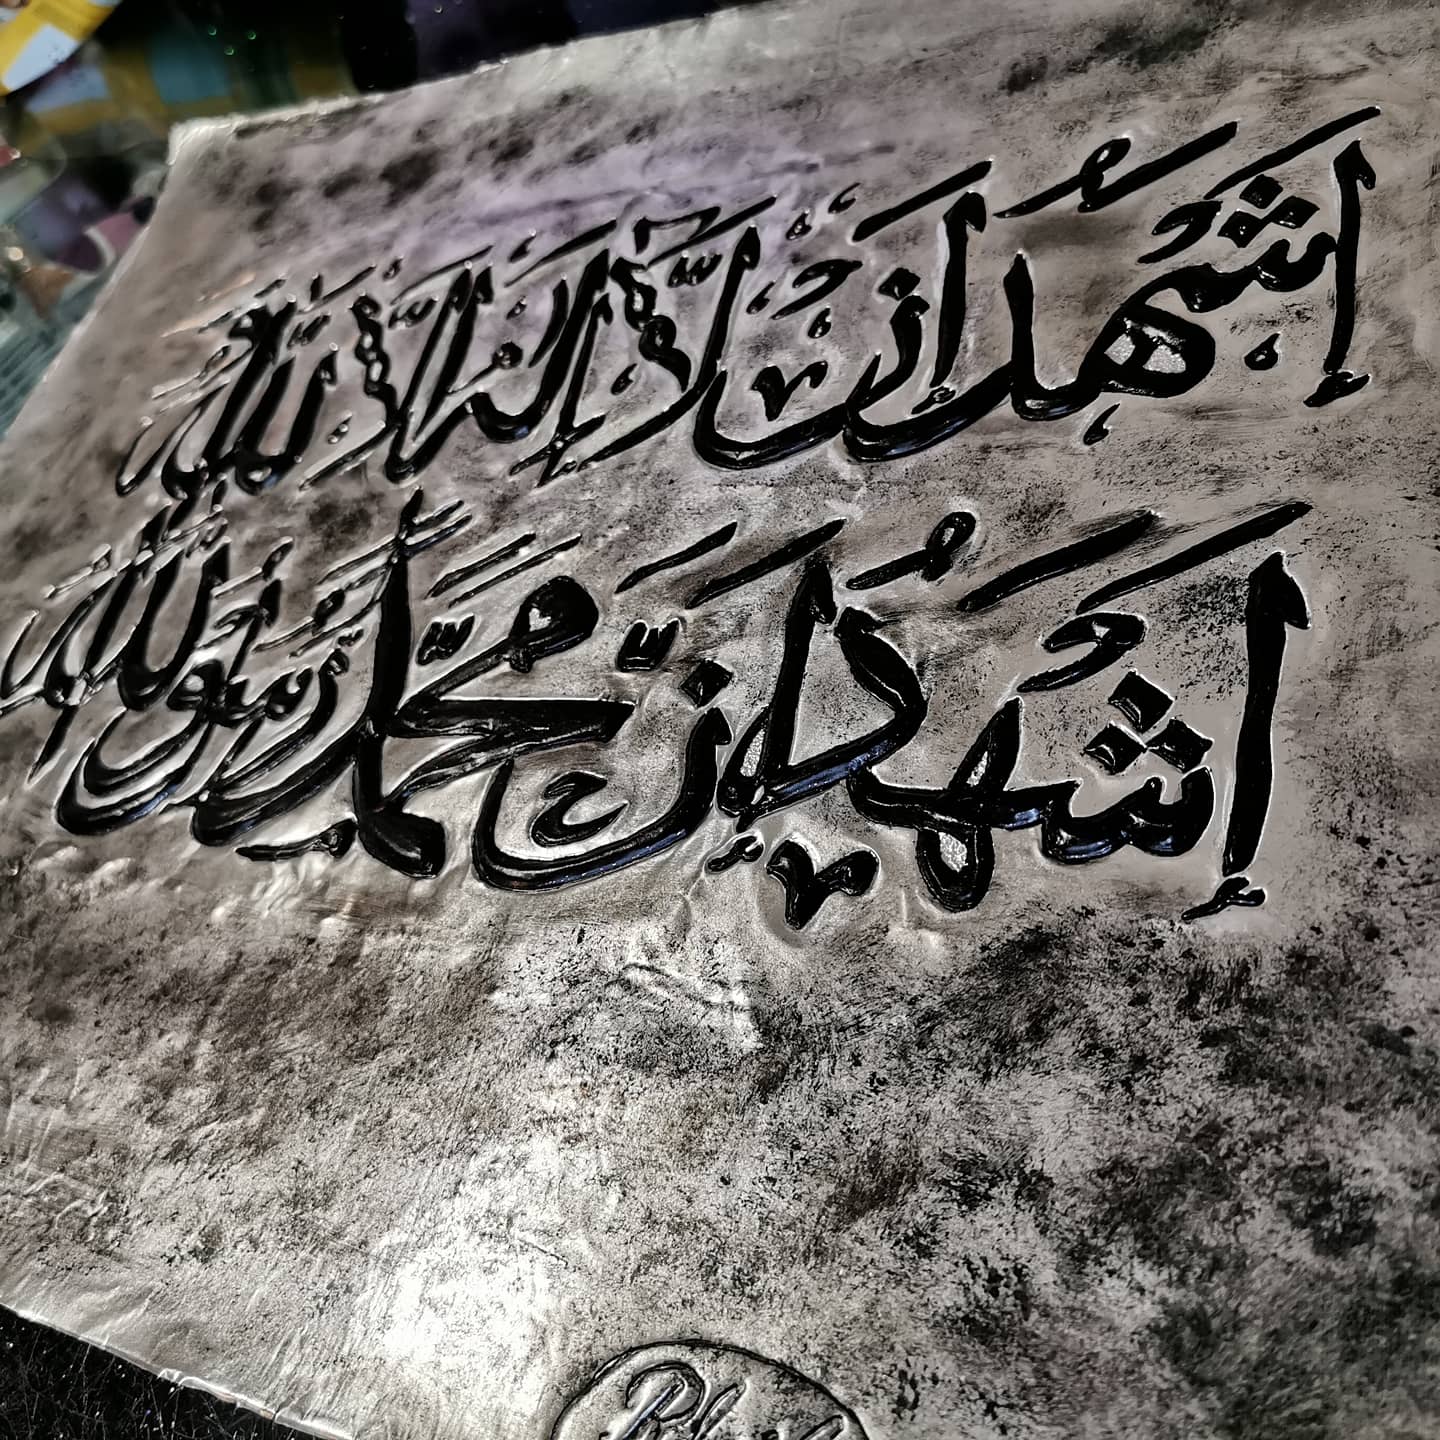 إشهد إن لا إله إلا الله
إشهد إن محمد رسول الله